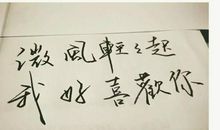 微風輕々起
我好喜歡你